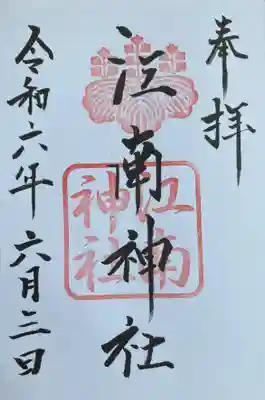 奉拝
江南神社
江南
神社
令和六年 六月三日